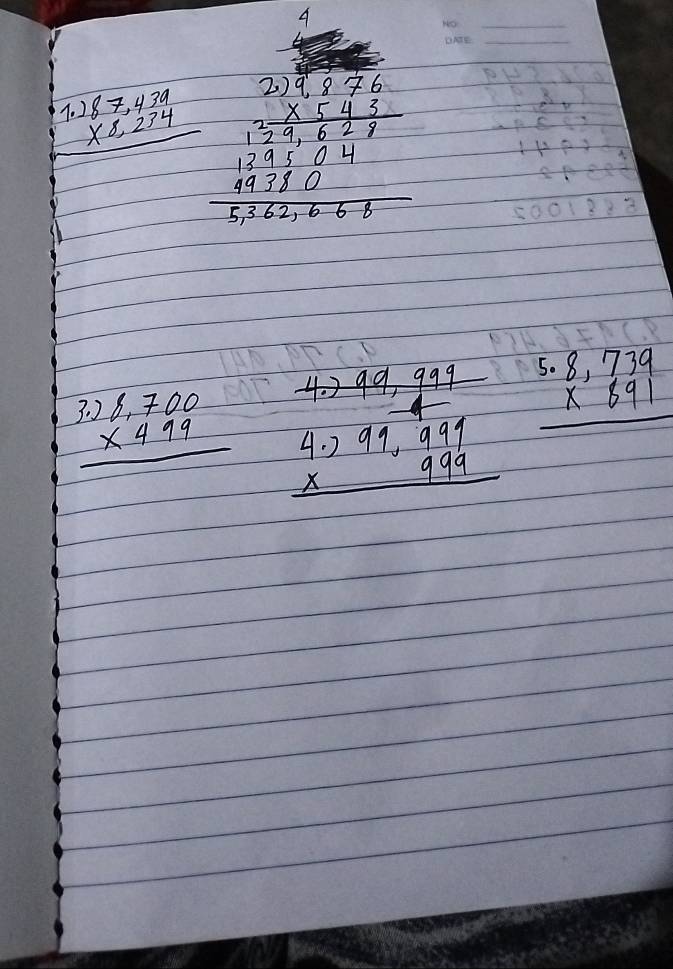 NO:
DATE:
4
1.) 87,439
x 8,234
2.) 9,876
x 543
2
129,628
139504
49380
5,362,668
3.) 8,700
x 499
4.) 99,999
4.) 99,999
x 999
5. 8,739
x 891